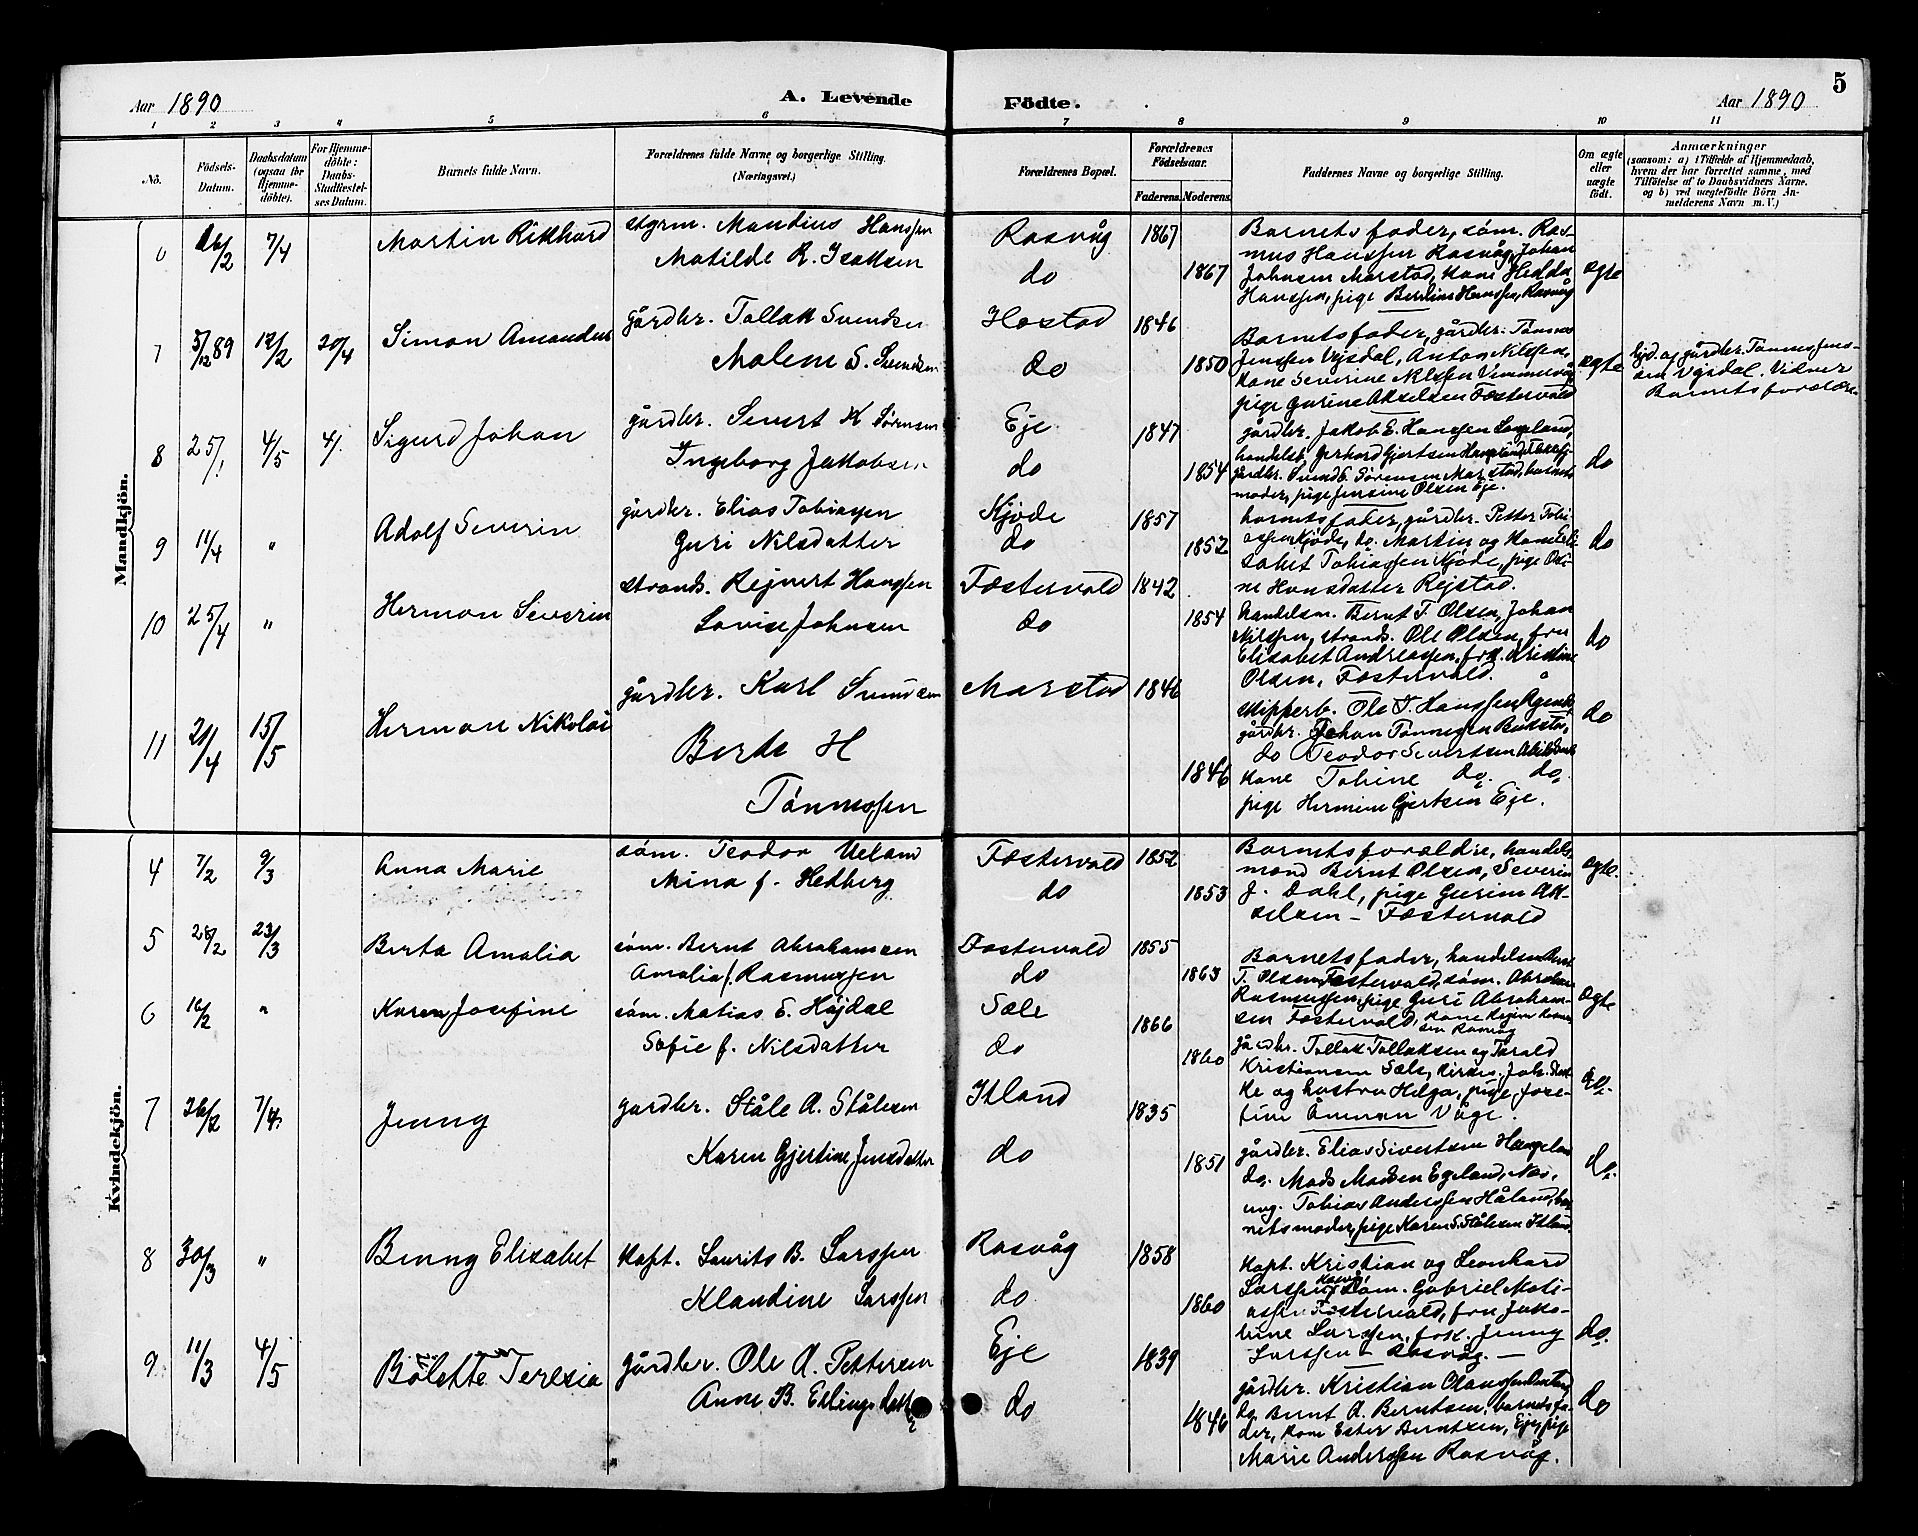 Aar 1890
A. Levende
Födte.
Aar 1890
5
1 2 3 4 5 6 7 8 9 10 11
No.
Födsels-Datum.
Daabsdatum (ogsaa for Hjemmedöbte).
For Hjemmedöbte: Daabs-Stadfæstelses Datum.
Barnets fulde Navn.
Forældrenes fulde Navne og borgerlige Stilling. (Næringsvei.)
Forældrenes Bopæl.
Forældrenes Födselsaar.
Faderens.
Moderens.
Faddernes Navne og borgerlige Stilling.
Om ægte eller uægte födt.
Anmærkninger
(saasom: a) i Tilfælde af Hjemmedaab, hvem der har forrettet samme, med Tilföielse af to Daabsvidners Navne, og b) ved uægtefödte Börn Anmelderens Navn m. V.)
Mandkjön.
6 26/2 7/4 Martin Rikhard
styrm. Mandius Hanssen
Matilde R. Isaksen
Rasvåg 1867
do 1867
Barnets fader, söm. Ras-
mus Hanssen Rasvåg, Johan
Johnsen Marstad, kone Hedda
Hanssen, pige Berdine Hanssen, Rasvåg
ægte
7 5/12 89 12/2 20/4 Simon Amandus
gårdbr. Tollak Svendsen
Malene S. Svendsen
Hestad 1846
do 1850
Barnets fader, gårdbr. Tönnes
Jenssen Vejsdal, Anton Nilssen,
kone Severine Nilssen
pige Gurine Akselsen Fæstervold
ægte
hjd. af gårdbr. Tönnes Jens-
sen Vejsdal. Vidner
Barnets forældre.
8 25/1 4/5 4/. Sigurd Johan
gårdbr. Sivert K Sörensen
Ingeborg Jakobsen
Eje 1847
do 1854
gårdbr. Jakob E. Hanssen
handelsb. Gerhard Gjertsen
gårdbr. Svend E. Sörensen Marstad, barnets
moder, pige Jensine Olsen Eje.
do
9 11/4 " Adolf Severin
gårdbr. Elias Tobiassen
Guri Nilsdatter
Kjöde 1857
do 1852
barnets fader, gårdbr. Petter Tobi-
assen Kjöde, do. Martin og kone Eli-
sabet Tobiassen Kjöde, pige Osi-
ne Hansdatter Rejstad.
do
10 25/4 " Herman Severin
strands. Rejnert Hanssen
Lovise Johnsen
Fæstervold 1842
do 1854
handelsm. Bernt T. Olsen, Johan
Nilssen, strands. Ole Olsen, fru
Elisabet Andreassen, frk. Kristine
Olsen, Fæstervold.
do
11 21/4 15/5 Herman Nikolai
gårdbr. Karl Svendsen
Berte H
Tönnessen
Marstad 1846
1846
skipperb. Ole T. Hanssen
gårdbr. Johan Tönnessen
do Teodor Severtsen
kone Tobine do. do.
pige Hermine Gjertsen Eje.
do
Kvindekjön.
4 7/2 9/3 Anna Marie
söm. Teodor Ueland
Mina f. Hedberg
Fæstervold 1852
do 1853
Barnets forældre, handels-
mand Bernt Olsen, Severin
J. Dahl, pige Gurine Ak-
selsen - Fæstervold
ægte.
5 28/2 23/3 Berta Amalia
söm. Bernt Abrahamsen
Amalia f. Rasmussen
Fæstervold 1855
do 1863
Barnets fader, handelsm Bernt
T. Olsen Fæstervold, söm. Abraham
Rasmussen, pige Guri Abraham-
sen Fæstervold, kone Regine Rasmus-
sen Rasvåg
ægte
6 16/2 " Karen Josefine
söm. Matias E. Höjdal
Sofie f. Nilsdatter
Sæle 1866
do 1860
gårdbr. Tollak Tollaksen og Tarald
Kristiansen Sæle, kirkes. Joh.
ke og hustru Helga, pige, Jose-
fine Åmman Våge.
do.
7 26/2 7/4 Jenny
gårdbr. Ståle A. Stålesen
Karen Gjertine Jensdatter
Itland 1835
do 1851
gårdbr. Elias Sivertsen Haugeland
do. Mads Madsen Egeland,
ung. Tobias Anderssen Håland, bar-
nets moder, pige Karen S. Stålesen Itland
do.
8 30/3 " Benny Elisabet
kapt. Laurits B. Larssen
Klaudine Larssen
Rasvåg 1858
do 1860
kapt. Kristian og Leonhard
Larssen Rasvåg, söm. Gabriel Mati-
assen Fæstervold, fru Jako-
bine Larssen, frk. Jenny
Larssen - Rasvåg. -
do.
9 11/3 4/5 Bolette Teresia
gårdbr. Ole A. Pettersen
Anne B. Ellingsdatter
Eje 1839
do 1846
gårdbr. Kristian Olaussen
do. Bernt A. Berntsen, barnets fa-
der, kone Ester Berntsen, Eje, pige
Marie Anderssen Rasvåg.
do